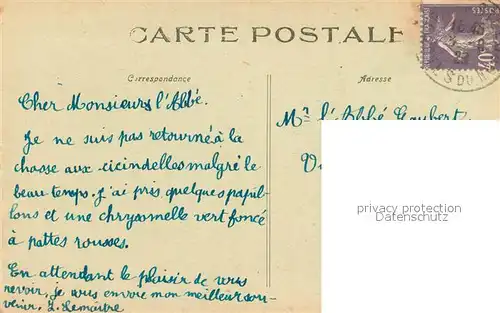 CARTE POSTALE
Correspondance
Adresse
Cher Monsieurs l'Abbé.
Je ne suis pas retourné à la
chasse aux cicindelles malgré le
beau temps. J'ai pris quelques papil-
lons et une chrysomelle vert foncé
à pattes rousses.
En attendant le plaisir de vous
revoir, je vous envoie mon meilleur sou-
venir. J. Lemaitre
Mr l'Abbé Gaubert
privacy protection
Datenschutz